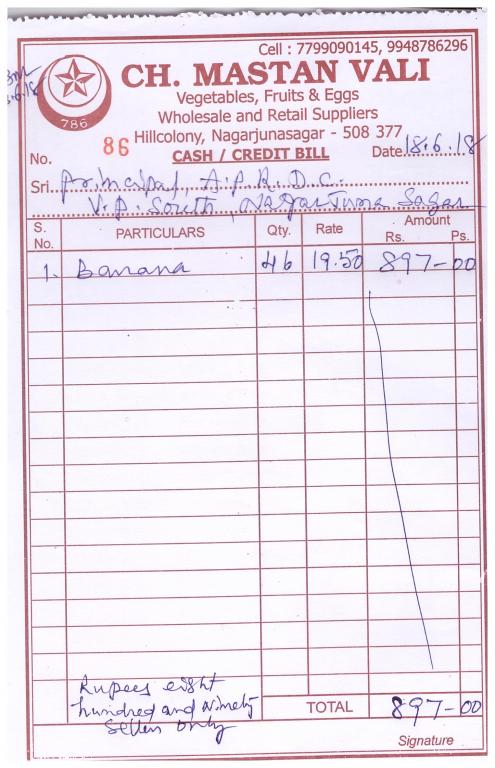 Cell : 7799090145, 9948786296
CH. MASTAN VALI
Vegetables, Fruits & Eggs
Wholesale and Retail Suppliers
786
Hillcolony, Nagarjunasagar - 508 377
No. 86 CASH / CREDIT BILL Date 18.6.18
Sri Principal, A.P.R.D.C.
V.P. South, Nagarjuna Sagar
S. No. PARTICULARS Qty. Rate Amount Rs. Ps.
1. Banana 46 19.50 897-00
Rupees eight
hundred and ninety
seven only
TOTAL 897-00
Signature